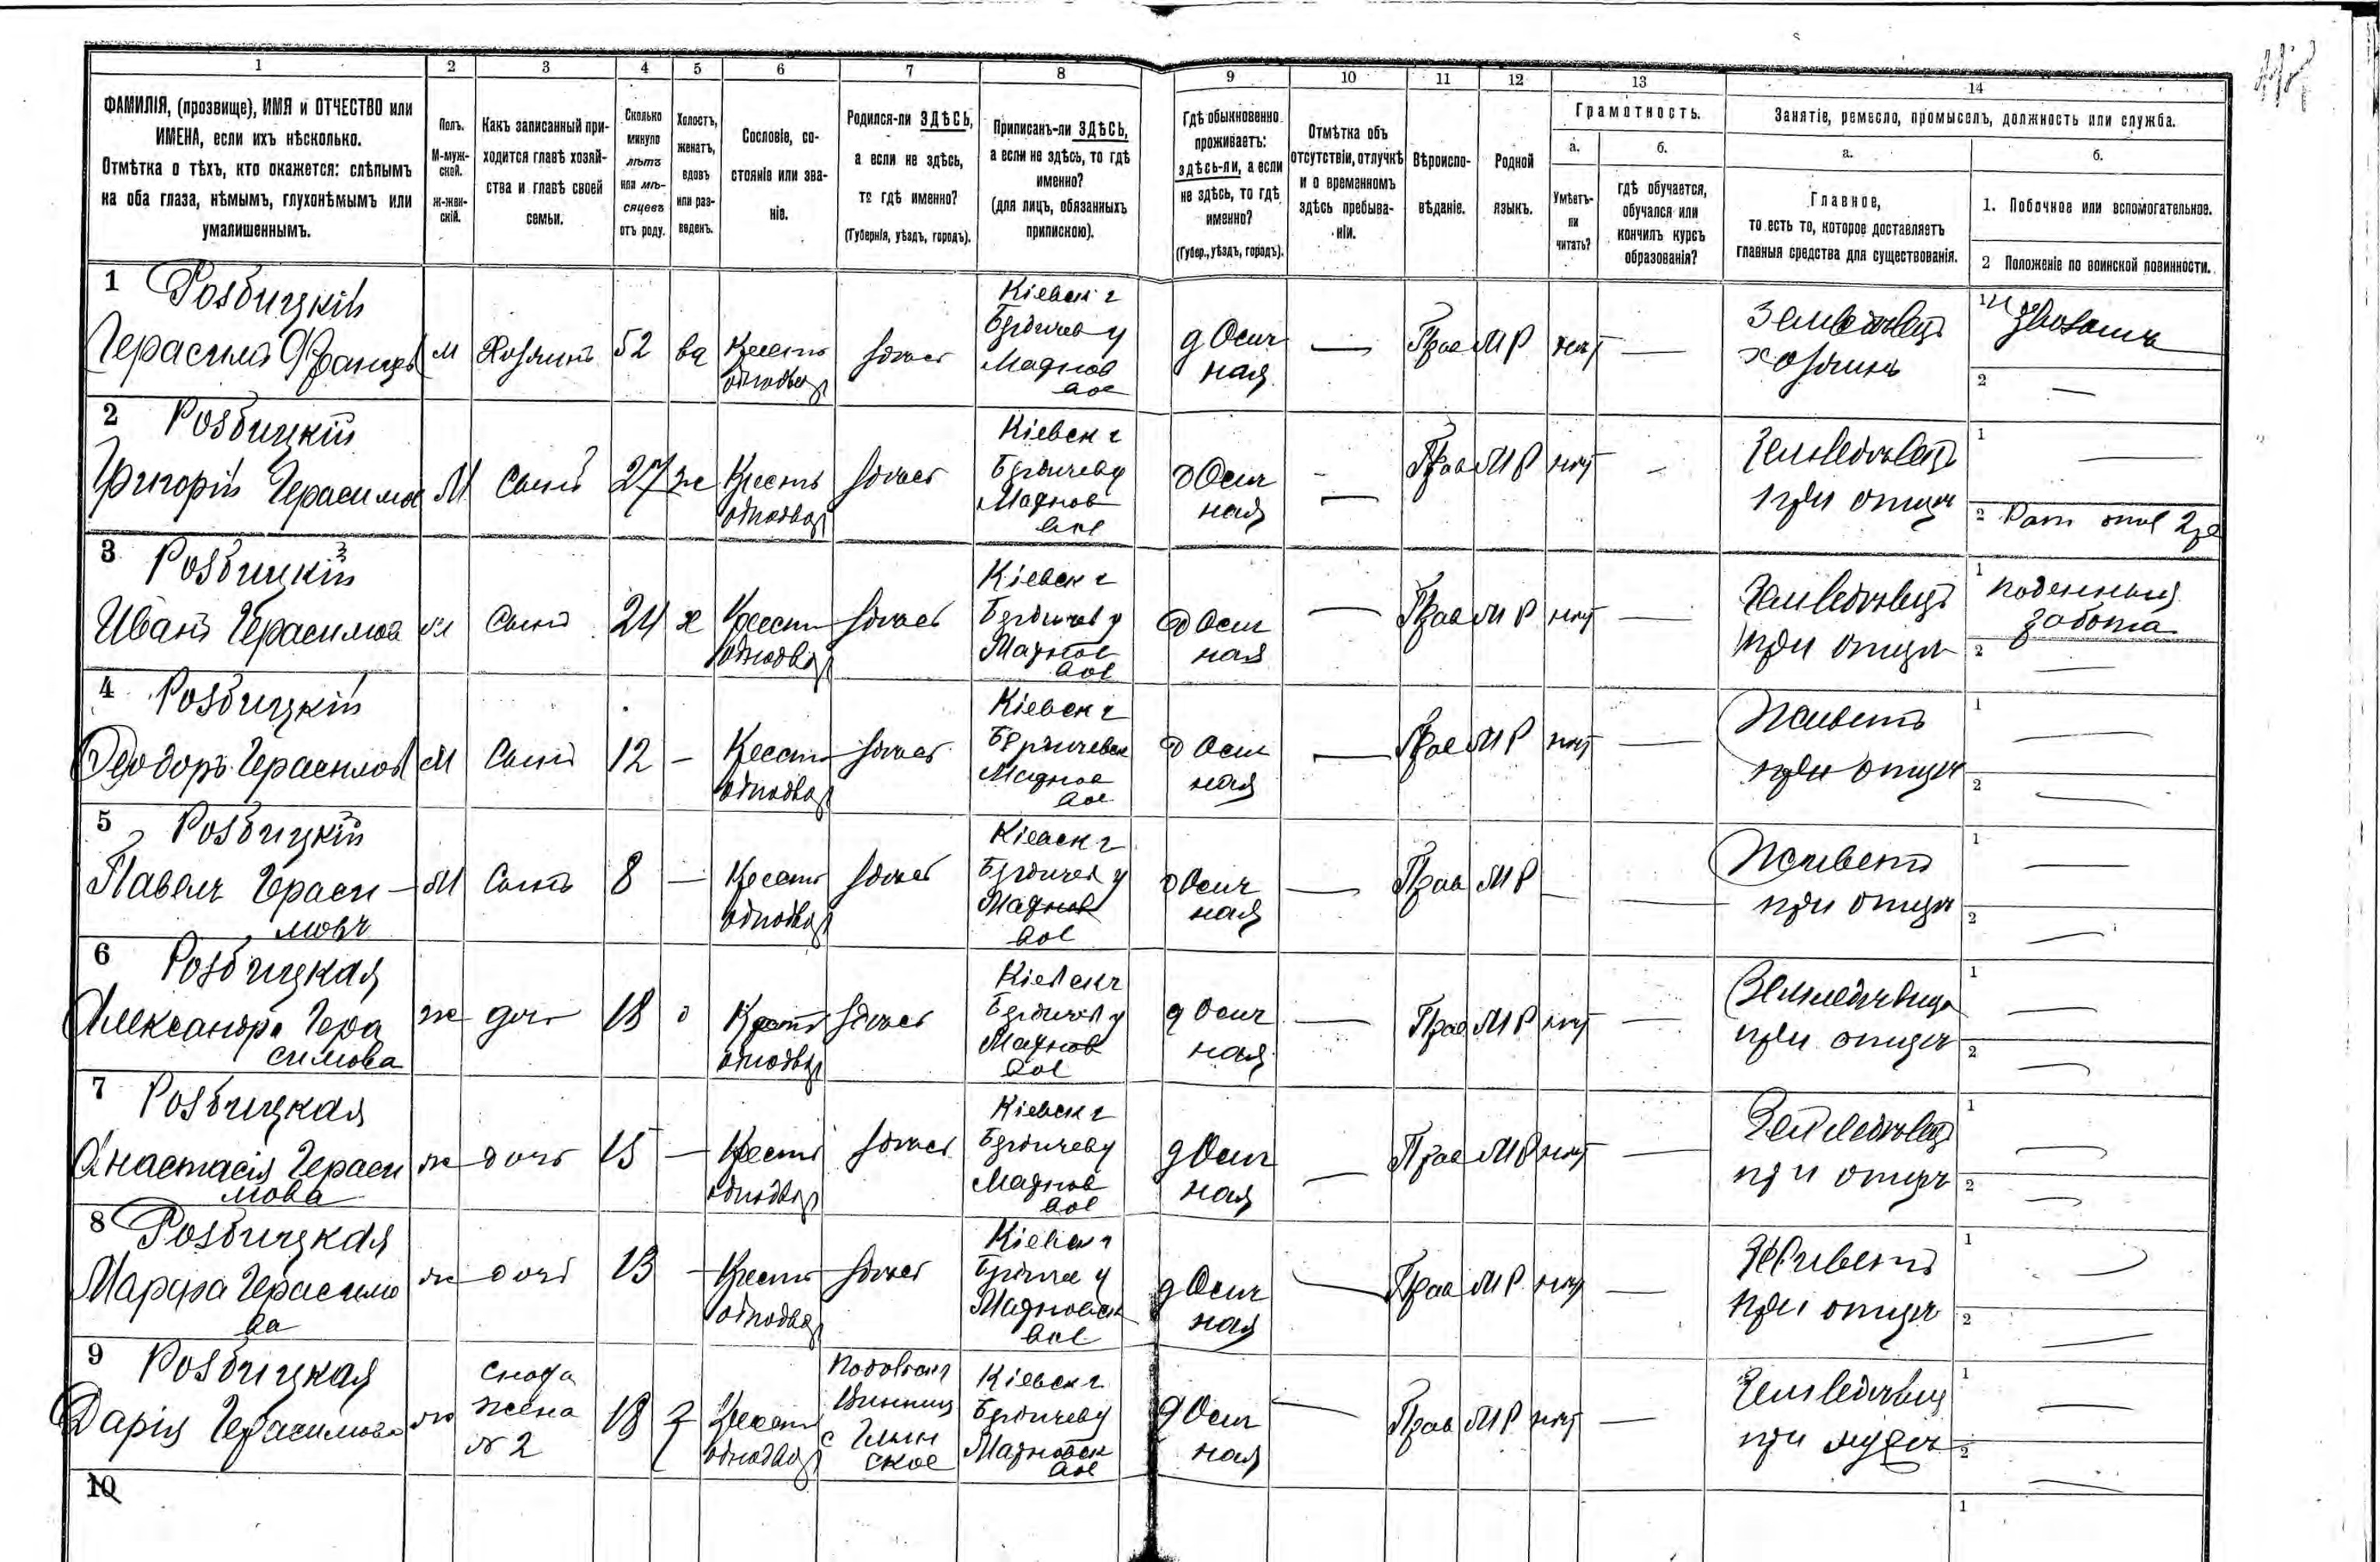 1 2 3 4 5 6 7 8 9 10 11 12 13 14
ФАМИЛІЯ, (прозвище), ИМЯ и ОТЧЕСТВО или
ИМЕНА, если ихъ нѣсколько.
Отмѣтка о тѣхъ, кто окажется: слѣпымъ
на оба глаза, нѣмымъ, глухонѣмымъ или
умалишеннымъ.
Полъ.
М-муж-
ской.
Ж-жен-
скій.
Какъ записанный при-
ходится главѣ хозяй-
ства и главѣ своей
семьи.
Сколько
минуло
лѣтъ
или мѣ-
сяцевъ
отъ роду.
Холостъ,
женатъ,
вдовъ
или раз-
веденъ.
Сословіе, со-
стояніе или зва-
ніе.
Родился-ли ЗДѢСЬ,
а если не здѣсь,
то гдѣ именно?
(Губернія, уѣздъ, городъ).
Приписанъ-ли ЗДѢСЬ,
а если не здѣсь, то гдѣ
именно?
(для лицъ, обязанныхъ
припискою).
Гдѣ обыкновенно
проживаетъ:
здѣсь-ли, а если
не здѣсь, то гдѣ
именно?
(Губер., уѣздъ, городъ).
Отмѣтка объ
отсутствіи, отлучкѣ
и о временномъ
здѣсь пребыва-
ніи.
Вѣроиспо-
вѣданіе.
Родной
языкъ.
Грамотность.
а.
Умѣетъ-
ли
читать?
б.
гдѣ обучается,
обучался или
кончилъ курсъ
образованія?
Занятіе, ремесло, промыселъ, должность или служба.
а.
Главное,
то есть то, которое доставляетъ
главныя средства для существованія.
б.
1. Побочное или вспомогательное.
2 Положеніе по воинской повинности.
1 Розбицкій
Герасимъ
м Хозяинъ 52 вд Крест
однодвор
здѣсь
Кіевск г
Бердичев у
Махнов
вол
д Осич
ная
— Прав МР нѣт —
Земледѣлец
хозяинъ
1
2 —
2 Розбицкій
Григорій Герасимов
М Сынъ 27 ж Крестъ
однодвор
здѣсь
Кіевск г
Бердичев у
Махнов
вол
д Осич
ная
— Прав МР нѣт -
Земледѣлец
при отцѣ
1 —
2
3 Розбицкій
Иванъ Герасимов
м Сынъ 24 х Крест
однодвор
здѣсь
Кіевск г
Бердичев у
Махнов
вол
д Осич
ная
— Прав МР нѣт —
Земледѣлец
при отцѣ
1 поденная
работа
2 —
4 Розбицкій
Ѳеодоръ Герасимов
М Сынъ 12 — Крест
однодвор
здѣсь
Кіевск г
Бердичевск
Махнов
вол
д Осич
ная
— Прав МР нѣт —
Живетъ
при отцѣ
1 —
2 —
5 Розбицкій
Павелъ Гераси-
мовъ
М Сынъ 8 — Крест
однодвор
здѣсь
Кіевск г
Бердичев у
Махнов
вол
д Осич
ная
— Прав МР — —
Живетъ
при отцѣ
1 —
2 —
6 Розбицкая
Александра Гера
симова
ж дочь 18 д Крест
однодвор
здѣсь
Кіевск г
Бердичев у
Махнов
вол
д Осич
ная
— Прав МР нѣт —
Земледѣлица
при отцѣ
1 —
2 —
7 Розбицкая
Анастасія Гераси
мова
ж дочь 15 — Крест
однодвор
здѣсь
Кіевск г
Бердичев у
Махнов
вол
д Осич
ная
— Прав МР нѣт —
Земледѣлец
при отцѣ
1 —
2 —
8 Розбицкая
Марфа Герасимо
ва
ж дочь 13 — Крест
однодвор
здѣсь
Кіевск г
Бердичев у
Махновск
вол
д Осич
ная
— Прав МР нѣт —
Живетъ
при отцѣ
1 —
2 —
9 Розбицкая
Дарія Герасимова
ж сноха
жена
№ 2
18 з Крест
однодвор
Подольск г
Винниц
с
ское
Кіевск г
Бердичев у
Махновск
вол
д Осич
ная
— Прав МР нѣт —
Земледѣлиц
при мужѣ
1 —
2 —
10
1